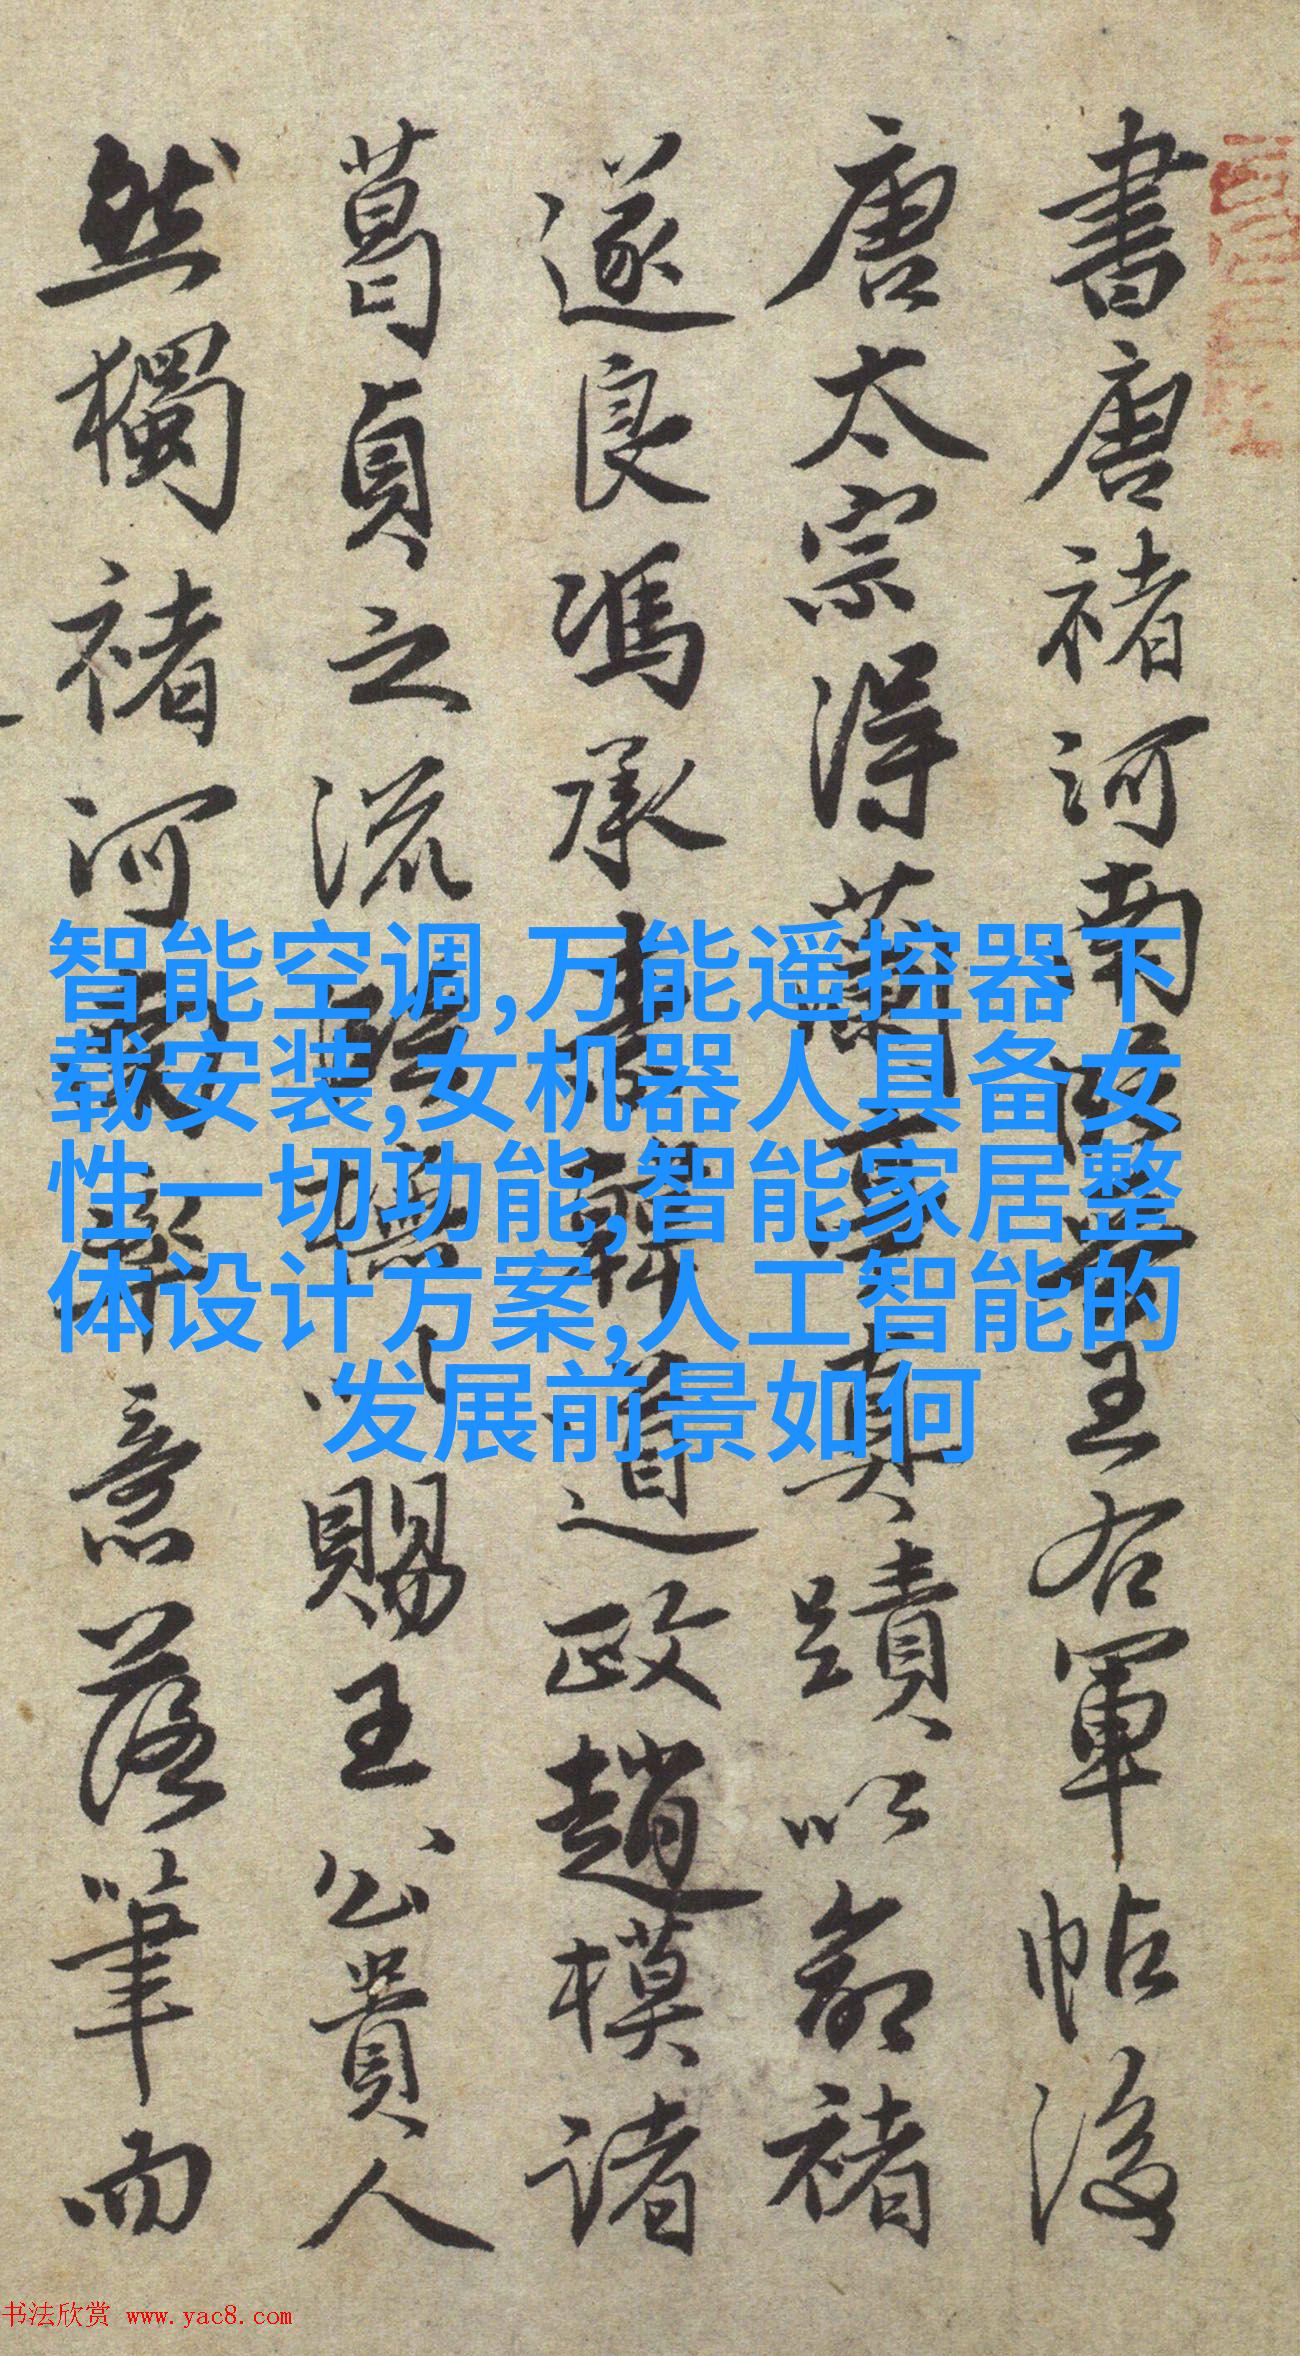 書唐褚河南臨 王右軍帖後
唐太宗得蘭亭真蹟以命褚
遂良馮承素韓道政趙模諸
葛貞之流 賜王公貴人
然獨褚河南 意落筆而
智能空调,万能遥控器下
载安装,女机器人具备女
性一切功能,智能家居整
体设计方案,人工智能的
发展前景如何
书法欣赏 www.yac8.com